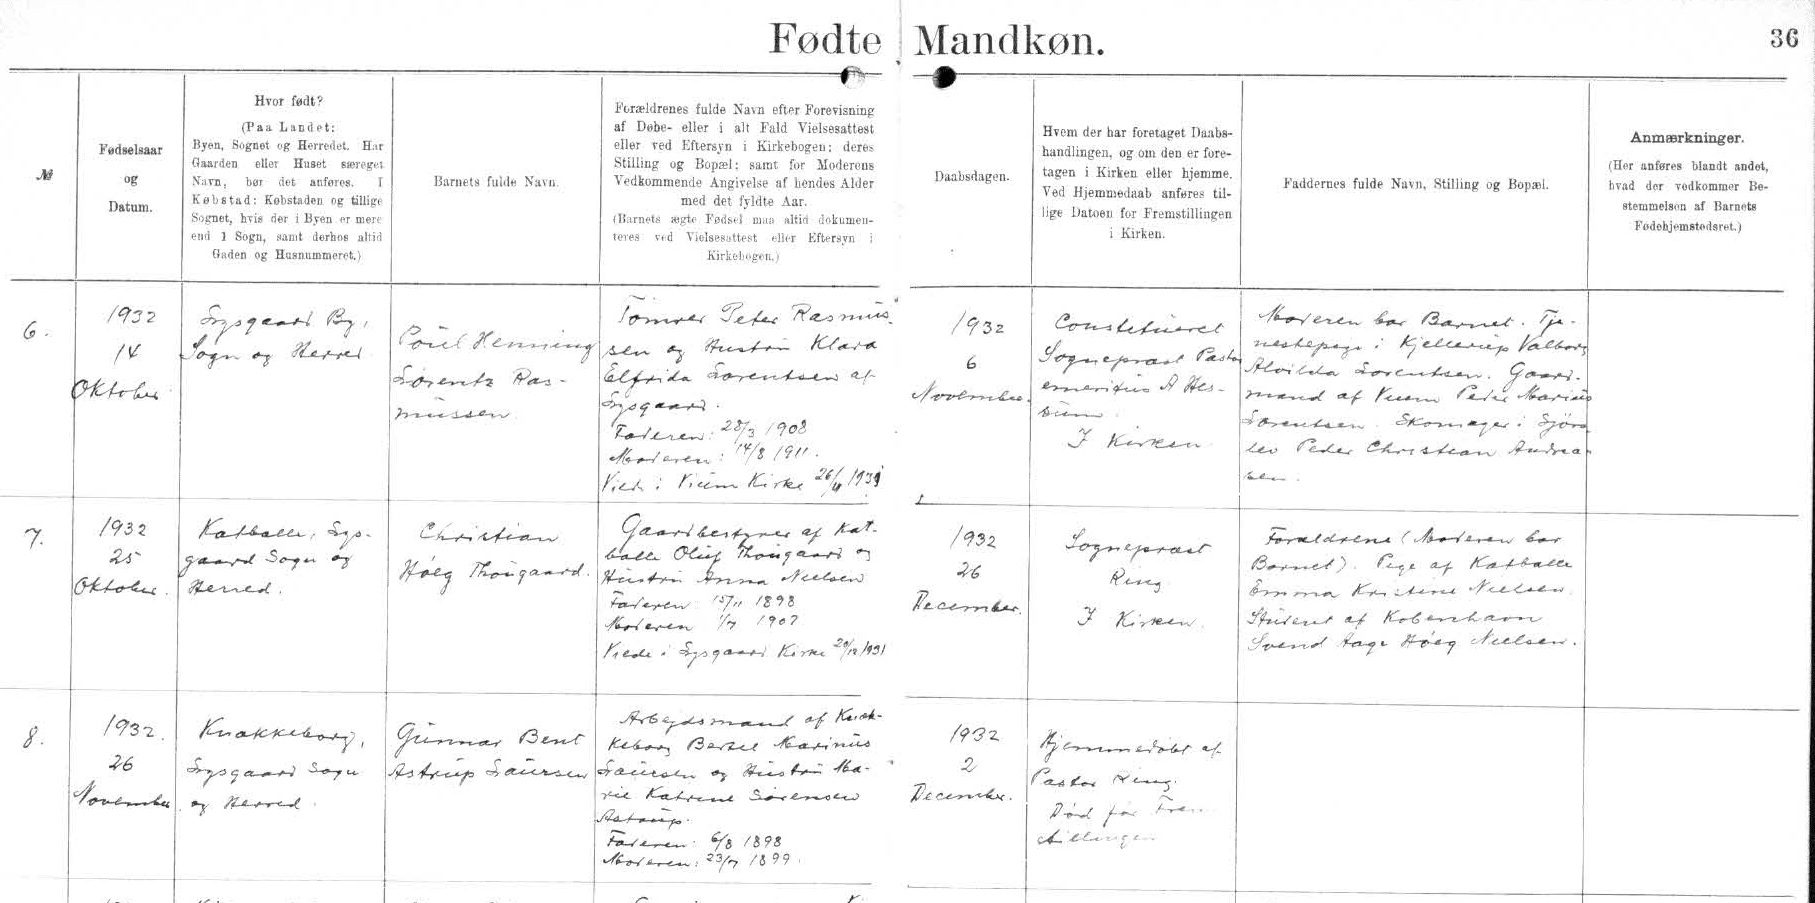 Fødte Mandkøn.
36
№
Fødselsaar
og
Datum.
Hvor født?
(Paa Landet:
Byen, Sognet og Herredet. Har
Gaarden eller Huset særeget
Navn, bør det anføres. I
Købstad: Købstaden og tillige
Sognet, hvis der i Byen er mere
end 1 Sogn, samt derhos altid
Gaden og Husnummeret.)
Barnets fulde Navn.
Forældrenes fulde Navn efter Forevisning
af Døbe- eller i alt Fald Vielsesattest
eller ved Eftersyn i Kirkebogen; deres
Stilling og Bopæl; samt for Moderens
Vedkommende Angivelse af hendes Alder
med det fyldte Aar.
(Barnets ægte Fødsel maa altid dokumen-
teres ved Vielsesattest eller Eftersyn i
Kirkebogen.)
Daabsdagen.
Hvem der har foretaget Daabs-
handlingen, og om den er fore-
tagen i Kirken eller hjemme.
Ved Hjemmedaab anføres til-
lige Datoen for Fremstillingen
i Kirken.
Faddernes fulde Navn, Stilling og Bopæl.
Anmærkninger.
(Her anføres blandt andet,
hvad der vedkommer Be-
stemmelsen af Barnets
Fødehjemstedsret.)
6.
1932
14
Oktober
Lysgaard By,
Sogn og Herred
Poul Henning
Lorentz Ras-
mussen
Tømrer Peter Rasmus-
sen og Hustru Klara
Elfrida Lorentsen af
Lysgaard.
Faderen: 28/3 1908
Moderen: 14/8 1911.
Viede i Vium Kirke 26/ 193
1932
6
November.
Constitueret
Sognepræst Pastor
emeritus A Hes-
I Kirken
Moderen bar Barnet. Tje-
nestepige i Kjellerup Valborg
Alvilda Lorentsen. Gaard-
mand af Vium Peder Marius
Lorentsen. Skomager i Sjørs-
lev Peder Christian Andrea-
sen.
7.
1932
25
Oktober.
Katballe, Lys-
gaard Sogn og
Herred.
Christian
Høeg Thougaard.
Gaardbestyrer af Kat-
balle Oluf Thougaard og
Hustru Anna Nielsen
Faderen: 15/11 1898
Moderen 1/7 1907
Viede i Lysgaard Kirke 20/12 1931
1932
26
December.
Sognepræst
Ring
I Kirken.
Forældrene (Moderen bar
Barnet). Pige af Katballe
Emma Kristine Nielsen.
Student af København
Svend Aage Høeg Nielsen.
8.
1932.
26
November
Knakkeborg,
Lysgaard Sogn
og Herred.
Gunnar Bent
Astrup Laursen
Arbejdsmand af Knak-
keborg Bertel Marinus
Laursen og Hustru Ma-
rie Katrine Sørensen
Astrup.
Faderen: 6/8 1898
Moderen: 23/7 1899.
1932
2
December.
Hjemmedøbt af
Pastor Ring.
Død før Frem-
stillingen